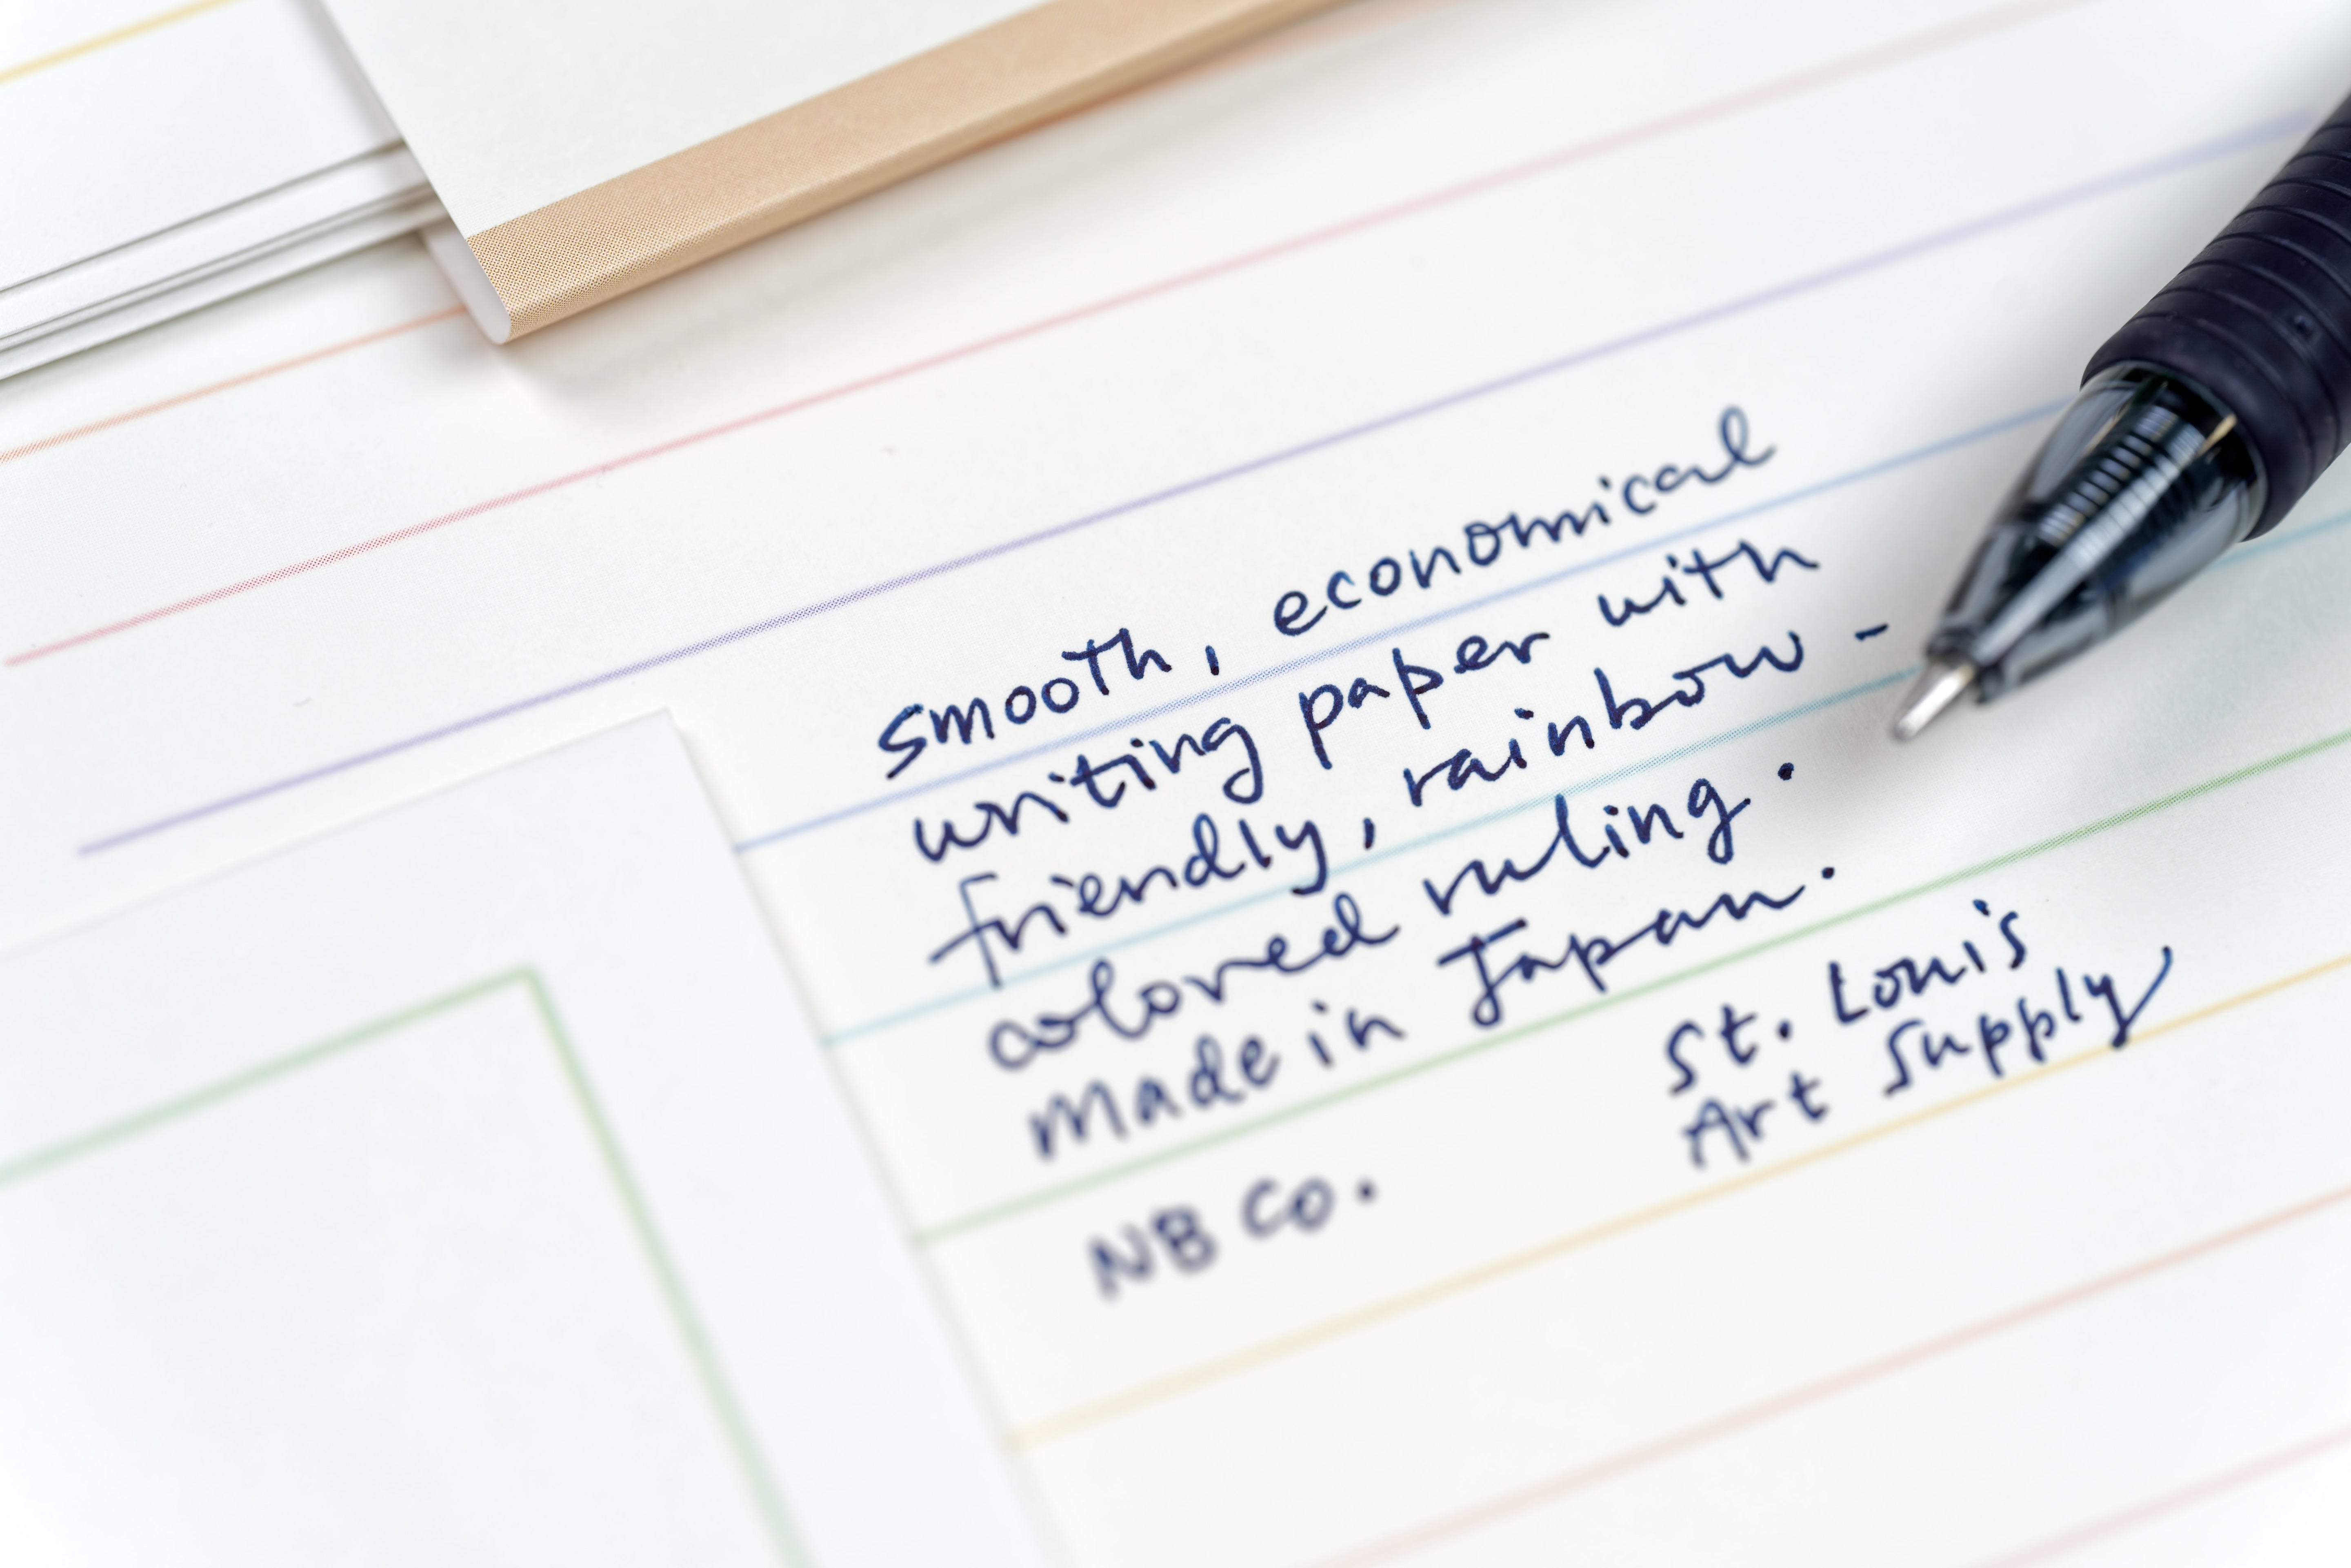 smooth, economical
writing paper with
friendly, rainbow-
colored ruling.
Made in Japan.
NB Co.
St. Louis
Art Supply